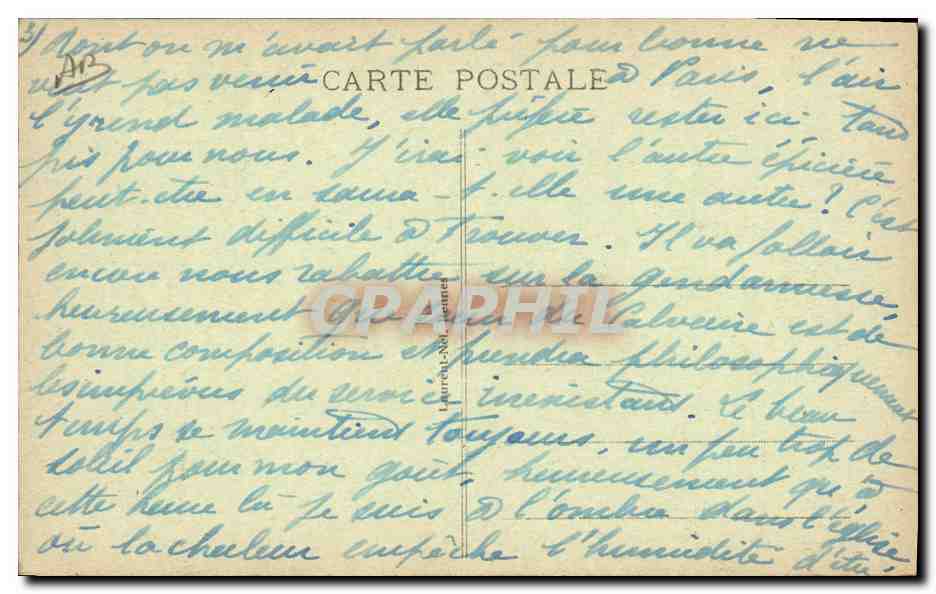 3) Dont on m'avait parlé pour bonne ne
veut pas venir à Paris, l'air
CARTE POSTALE
AB
malade, elle préfère rester ici tant
pis pour nous. J'irai voir l'autre épicière
peut-être en saura-t-elle une autre? C'est
joliment difficile à trouver. Il va falloir
encore nous rabattre sur la gendarmerie
heureusement que du Calvaire est de
bonne composition et prendra philosophiquement
les imprévus du service inexistant. Le beau
temps se maintient toujours, un peu trop de
soleil pour mon goût, heureusement qu'à
cette heure là je suis à l'ombre dans l'église,
où la chaleur empêche l'humidité d'être
Laurent-Nel, Rennes
CPAPHIL